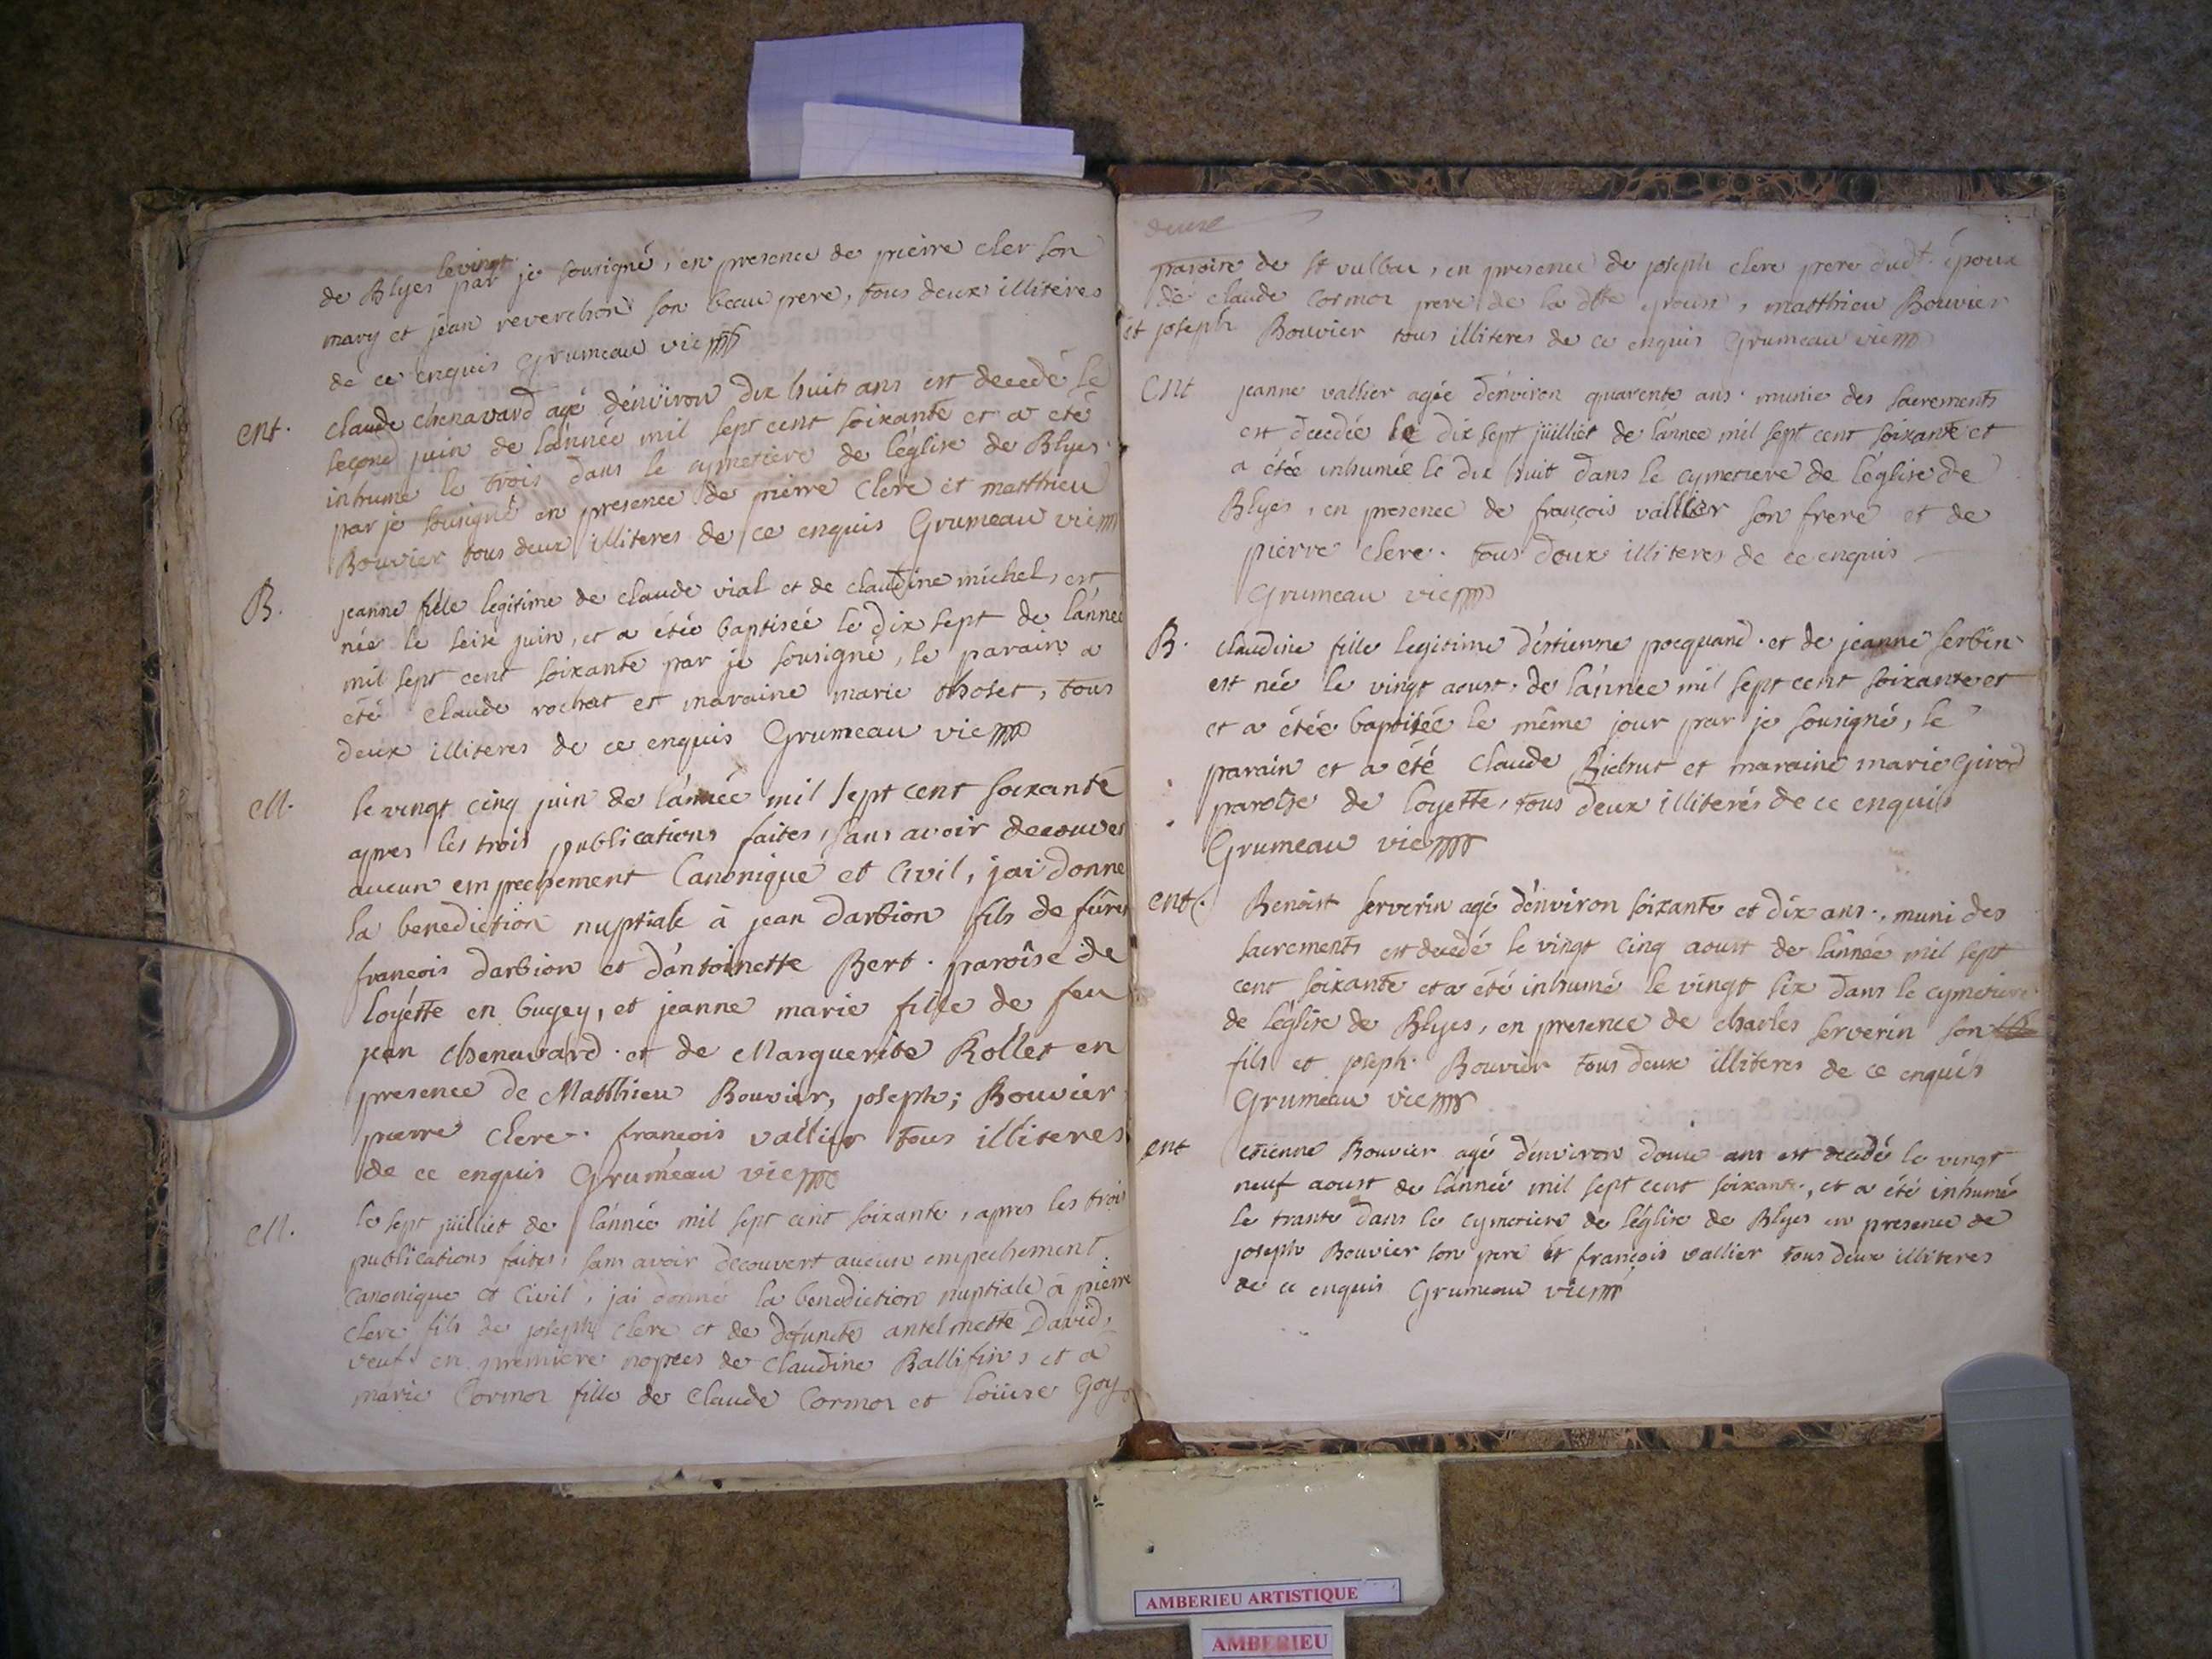 le vingt
de Blyes par je sousigné, en presence de pierre cler son
mary et jean reverchon son beau pere, tous deux illiteres
de ce enquis Grumeau vic
ent. claude chenavard agé d'environ dix huit ans est decedé le
second juin de l'année mil sept cent soixante et a eté
inhumé le trois dans le cymetiere de l'église de Blyes
par je sousigné en presence de pierre Clere et matthieu
Bouvier tous deux illiteres de ce enquis Grumeau vic
B. jeanne fille legitime de claude vial et de claudine michel, est
née le seise juin, et a étée baptisée le dix sept de l'année
mil sept cent soixante par je sousigné, le parain a
été claude rochat et maraine marie thoset, tous
deux illiteres de ce enquis Grumeau vic
M. le vingt cinq juin de l'année mil sept cent soixante
apres les trois publications faites, sans avoir decouvert
aucun empechement Canonique et Civil, jai donné
la benediction nuptiale à jean darbion fils de fûret
francois darbion et d'antoinette Bert. paroîse de
loyétte en bugey, et jeanne marie fille de feu
jean chenavard. et de Marguerite Rollet en
presence de Matthieu Bouvier, joseph; Bouvier
pierre Clere. francois vallier tous illiteres
de ce enquis Grumeau vic
M. le sept juilliet de l'année mil sept cent soixante, apres les trois
publications faites, sans avoir decouvert aucun empechement
canonique et Civil, jai donné la benediction nuptiale à pierre
Clere fils de joseph clere et de defuncte antelmette David,
veuf en premiere nopces de Claudine Ballifin, et a
marie Cormoz fille de Claude Cormoz et loüise Goy
paroise de st vulbas, en presence de joseph clere pere dudt. époux
de claude Cormoz pere de la dtte epouse, matthieu Bouvier
et joseph Bouvier tous illiteres de ce enquis Grumeau vic
ent jeanne vallier agée d'environ quarente ans. munie des sacrements
est decedée le dix sept juilliet de l'année mil sept cent soixante et
a étée inhumée le dix huit dans le cymetiere de l'église de
Blyes, en presence de françois vallier son frere et de
pierre clere. tous deux illiteres de ce enquis
Grumeau vic
B. claudine fille legitime d'estienne pocquand. et de jeanne serbin
est née le vingt aoust. de l'année mil sept cent soixante et
et a étée baptisée le même jour par je sousigné, le
parain et a été Claude Bichut et maraine marie Girod
paroise de loyette, tous deux illiterés de ce enquis
Grumeau vic
ent. Benoist serverin agé d'environ soixante et dix ans., muni des
sacrements est decedé le vingt cinq aoust de l'année mil sept
cent soixante et a été inhumé le vingt six dans le cymetiere
de l'église de Blyes, en presence de charles serverin son
fils et joseph. Bouvier tous deux illiteres de ce enquis
Grumeau vic
ent etienne Bouvier agé d'environ douze ans est decedé le vingt
neuf aoust de l'année mil sept cent soixante., et a été inhumé
le trante dans le cymetiere de l'église de Blyes en presence de
joseph Bouvier son pere et françois vallier tous deux illiteres
de ce enquis Grumeau vic
AMBERIEU ARTISTIQUE
AMBERIEU